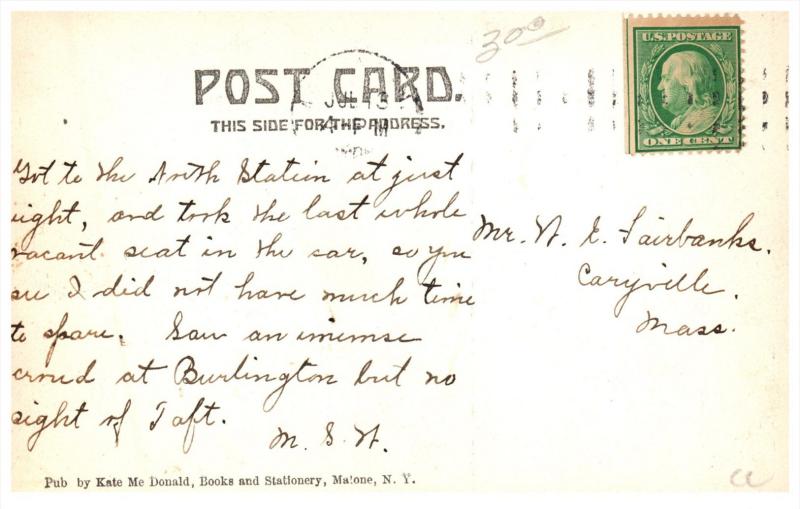 300
U.S. POSTAGE
ONE CENT
POST CARD.
THIS SIDE FOR THE ADDRESS.
JUL 13
Got to the North Station at just
ight, and took the last whole
vacant seat in the car, so you
see I did not have much time
to spare. Saw an imense
crowd at Burlington but no
sight of Taft.
M. S. W.
Mr. W. E. Fairbanks.
Caryville.
Mass.
Pub by Kate Mc Donald, Books and Stationery, Malone, N. Y.